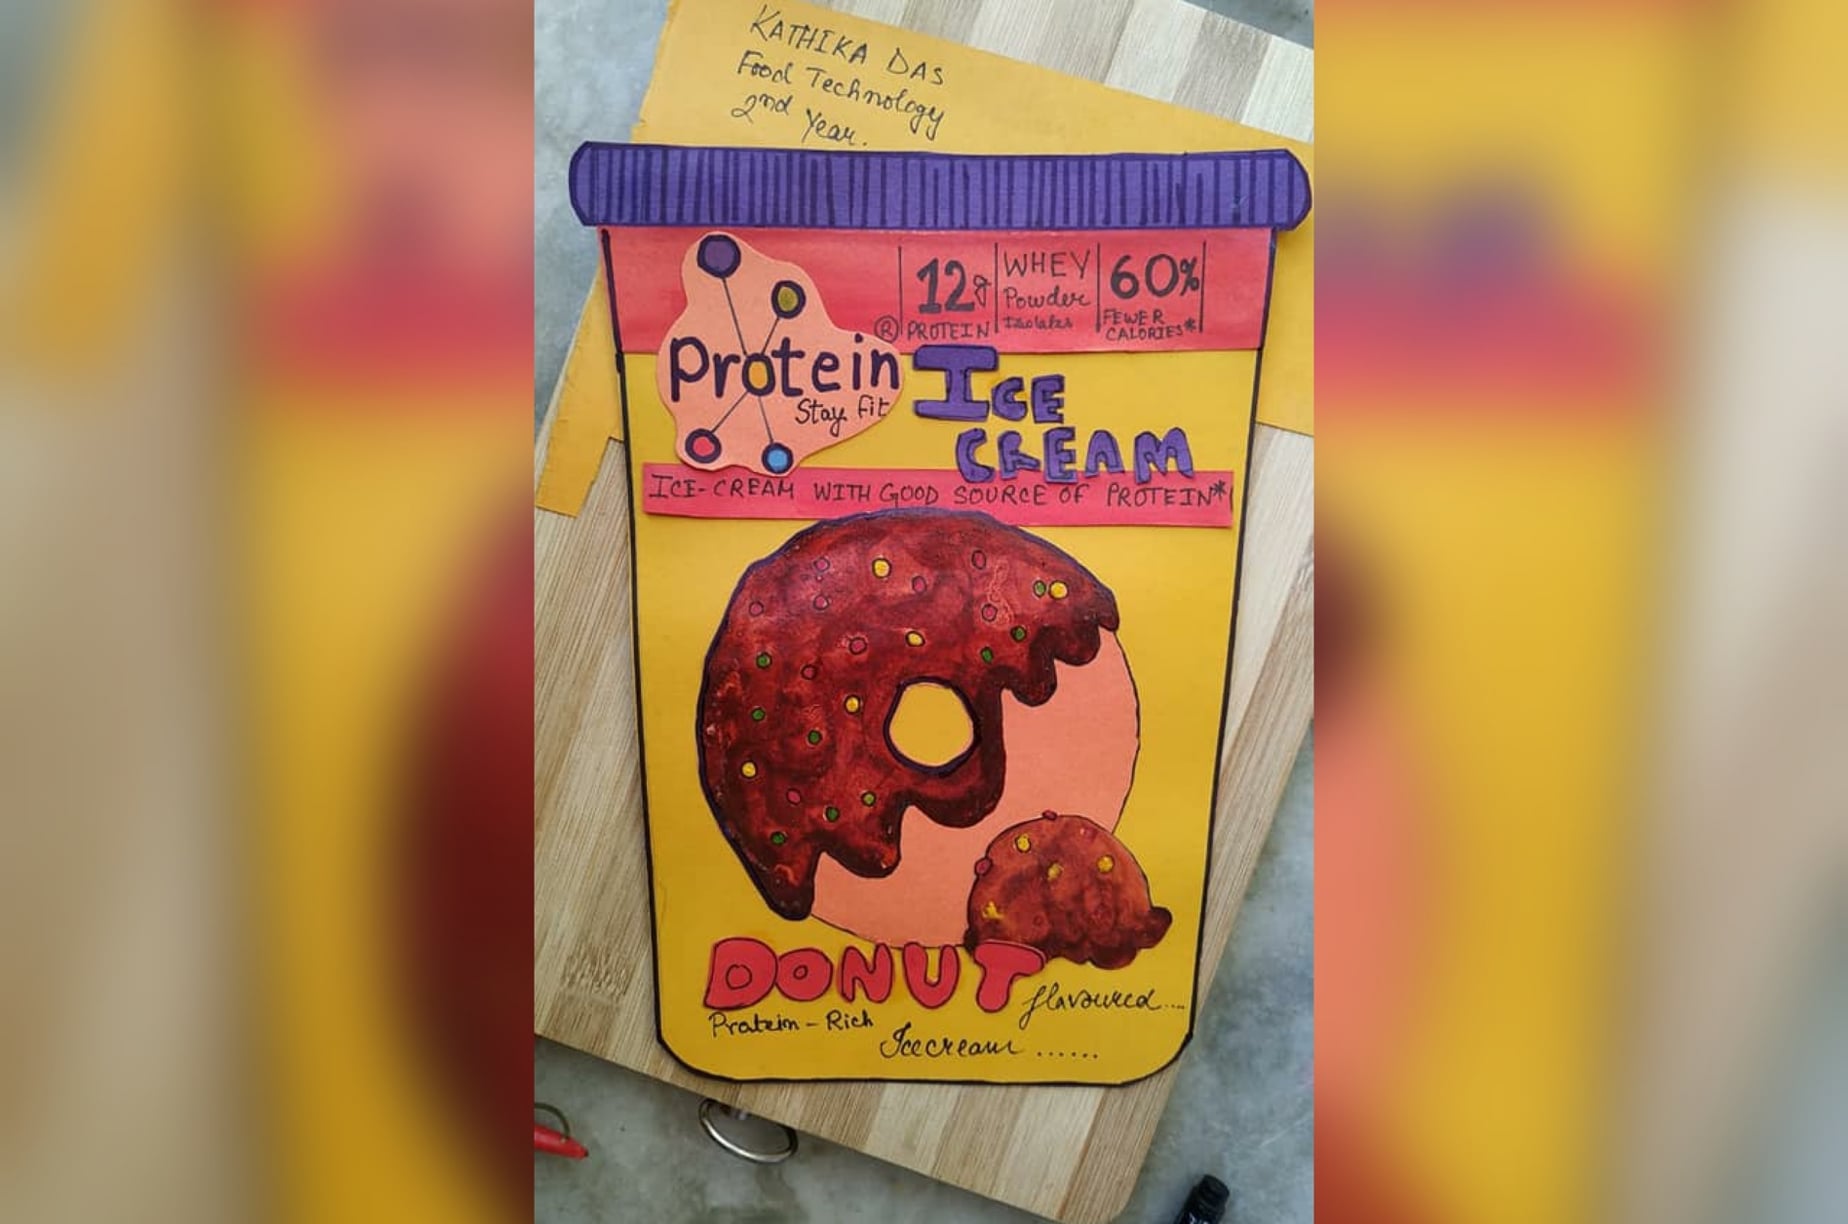 KATHIKA DAS
Food Technology
2nd Year.
12g
PROTEIN
WHEY
Powder
Isolates
60%
FEWER
CALORIES*
®
Protein
Stay Fit
ICE
CREAM
ICE-CREAM WITH GOOD SOURCE OF PROTEIN*
DONUT
flavoured....
Protein - Rich
Icecream ......